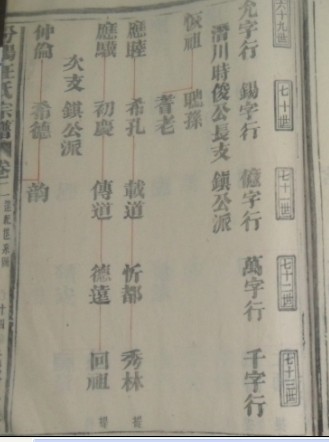 六十九世
七十世
七十一世
七十二世
七十三世
允字行
錫字行
億字行
萬字行
千字行
潛川時俊公長支 鎮公派
恢祖 聰孫
耆老
應睦 希孔 載道 忻都 秀林
應驥 初慶 傳道 德遠 回祖
次支 鎮公派
仲倫 希德 韵
氏宗譜 卷二